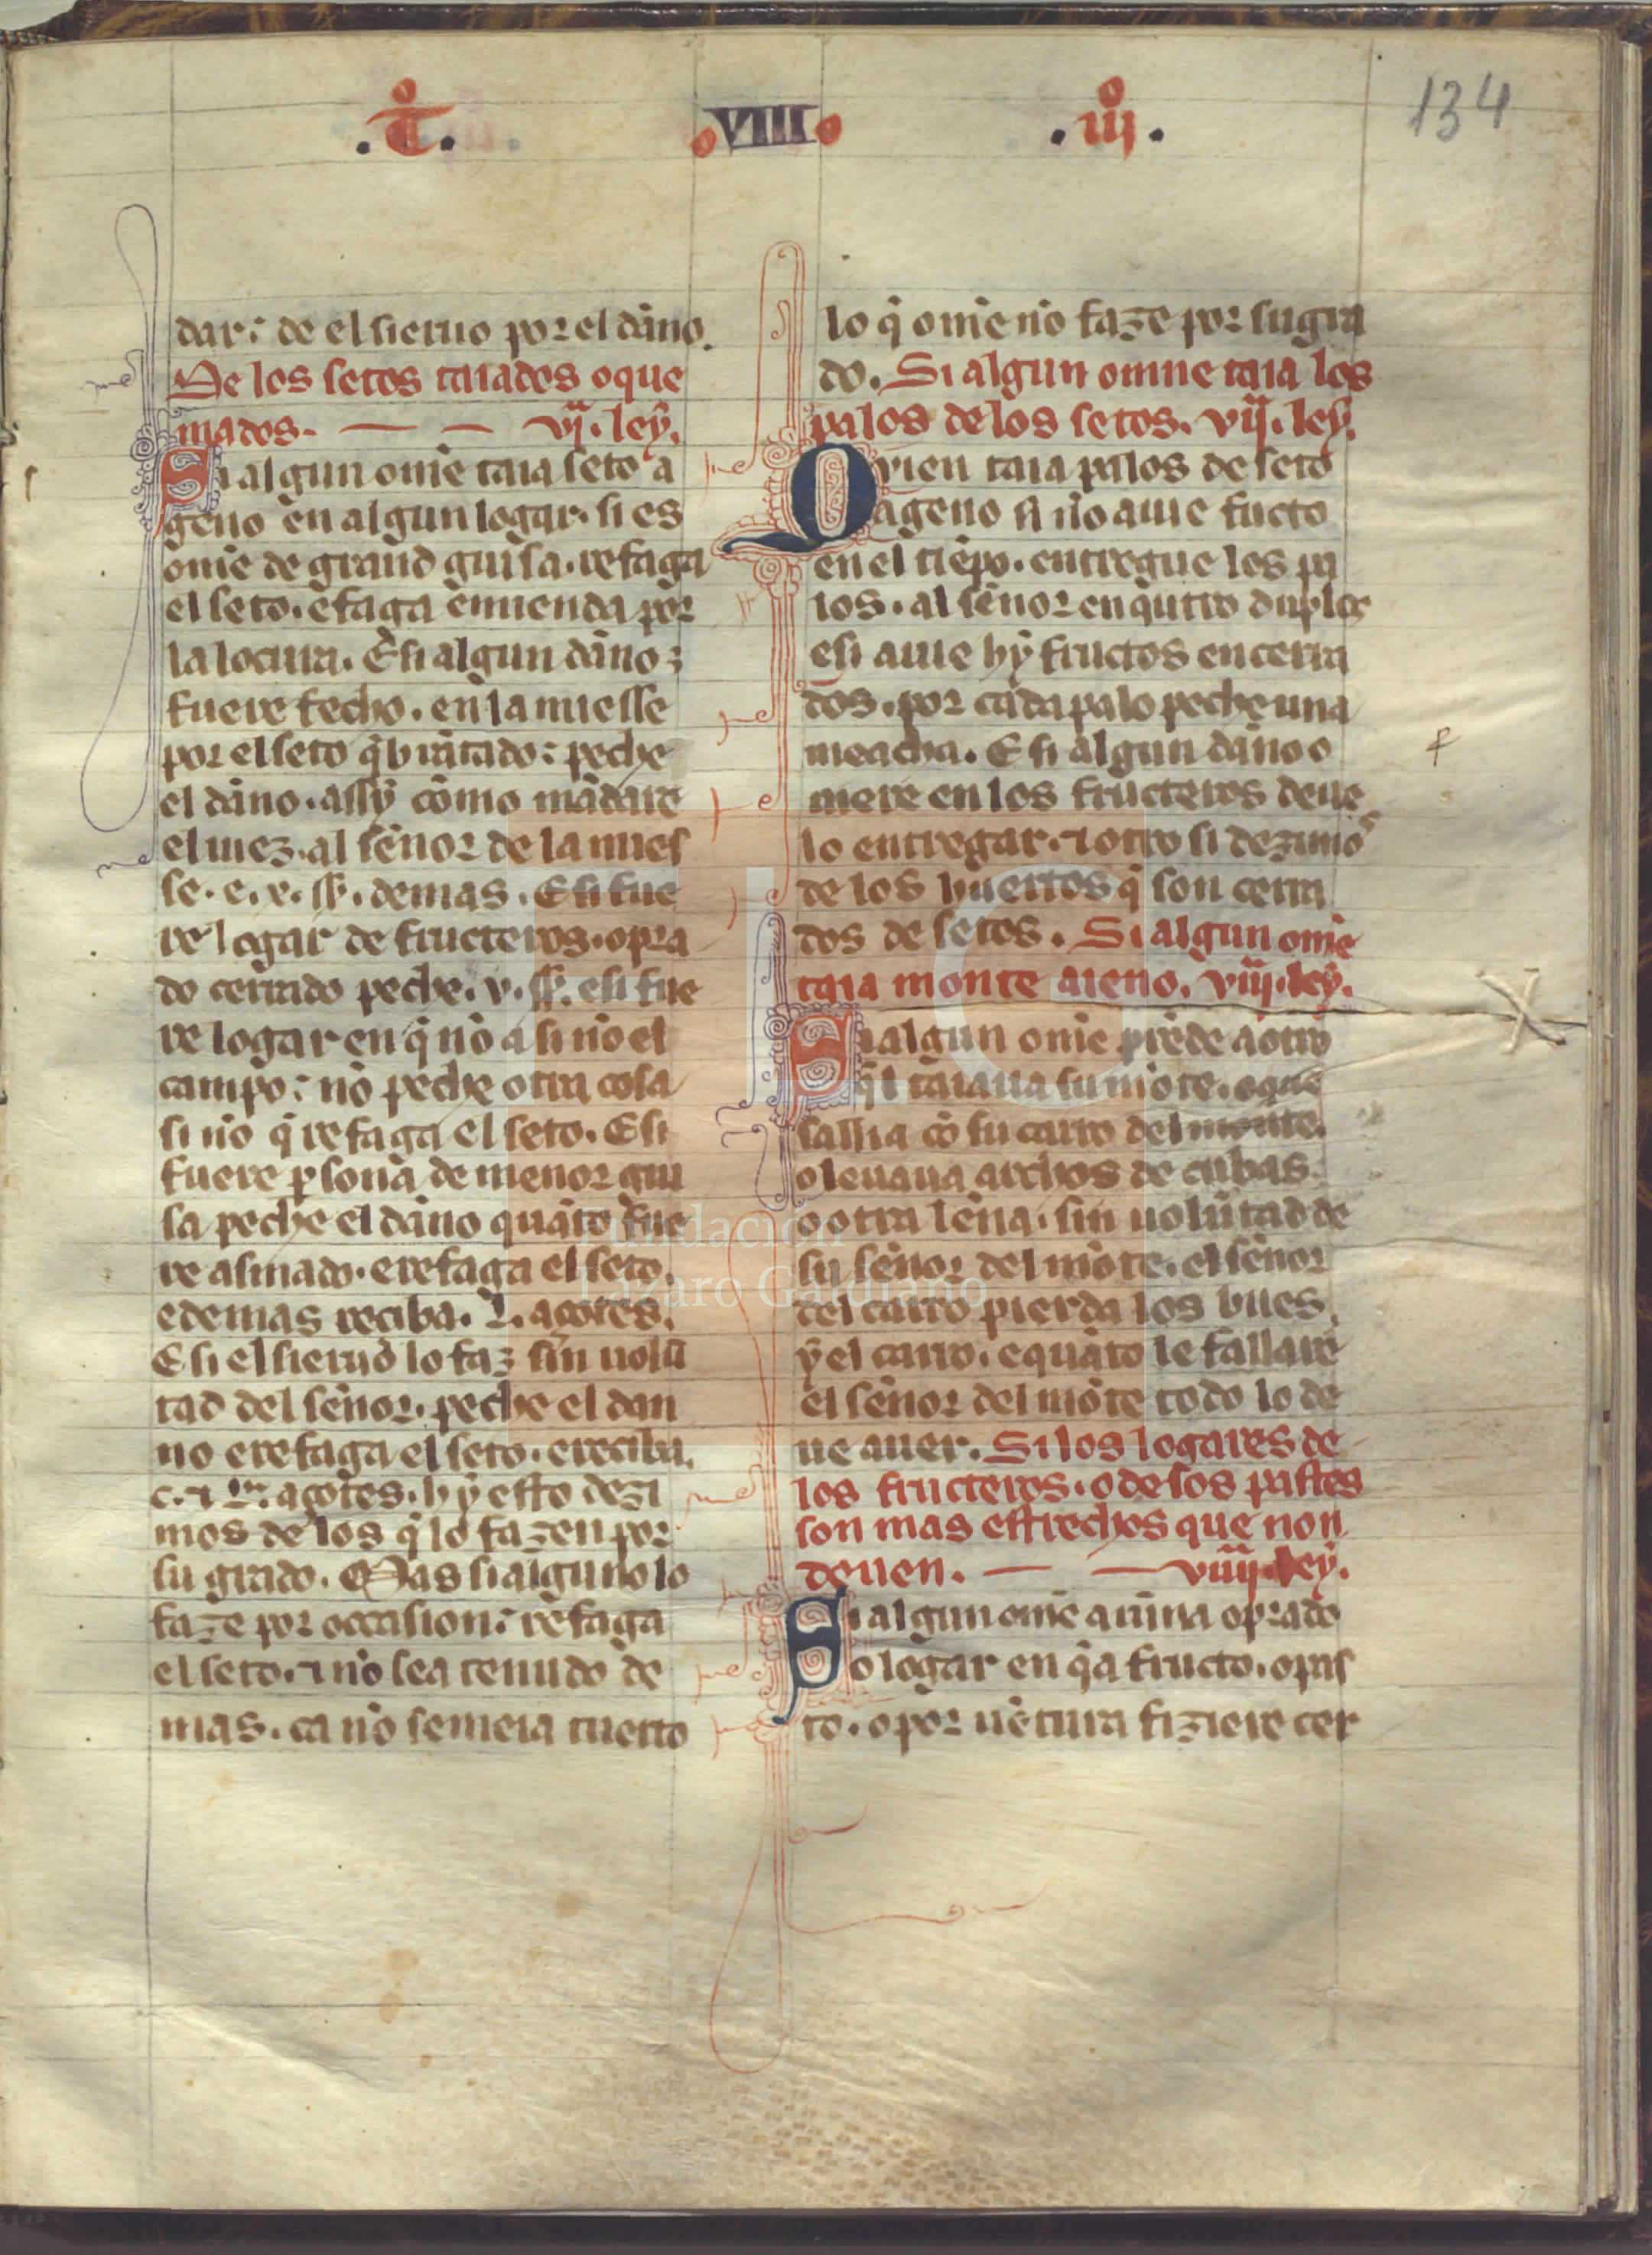 .t̊. VIII .iij̊.
134
dar: de el sieruo por el dãno.
De los setos taiados o que
mados. vja. ley.
Si algun om̃e taia seto a
geno en algun logar. si es
om̃e de grand guisa. refaga
el seto. e faga emienda por
la locura. E si algun dãno
fuere fecho. en la miesse
por el seto q̃brãtado: peche
el dãno. assy cõmo mãdare
el iuez. al sẽnor de la mies
se. e. x. ss̃. demas. E si fue
re logar de fructeros. o pra
do cerrado peche. v. ss̃. e si fue
re logar en q̃ nõ a si nõ el
campo: nõ peche otra cosa
si nõ q̃ refaga el seto. E si
fuere ꝑsona de menor gui
sa peche el dãno quãto fue
re asmado. e refaga el seto.
e demas reciba. L. açotes.
E si el sieruo lo faz sin uolũ
tad del sẽnor. peche el dan
no e refaga el seto. e reciba.
c. ⁊ L. açotes. hy esto dezi
mos de los q̃ lo fazen por
su grado. Mas si alguno lo
faze por occasion: refaga
el seto. ⁊ nõ sea tenudo de
mas. ca nõ semeia tuerto
lo q̃ om̃e nõ faze por su gra
do. Si algun omne taia los
palos de los setos. vija. ley.
Qvien taia palos de seto
ageno si nõ auie fructo
en el tiẽpo. entregue los pa
los. al sẽnor en q̃tro duplos
e si auie hy fructos encerra
dos. por cada palo peche una
meacha. E si algun dãno o
mere en los fructeros deue
lo entregar. ⁊ otro si dezimos
de los huertos q̃ son cerra
dos de setos. Si algun om̃e
taia monte aieno. viija. ley.
Si algun om̃e prẽde a otro
q̃l taiaua su mõte. o que
sallia cõ su carro del monte.
o leuaua archos de cubas.
o otra lẽna. sin uolũtad de
su sẽnor del mõte. el sẽnor
del carro pierda los bues.
y el carro. e quãto le fallare
el sẽnor del mõte todo lo de
ue auer. Si los logares de
los fructeros. o de los pastes
son mas estrechos que non
deuen. viiija. ley.
Si algun om̃e a uina o prado
o logar en q̃ a fructo. o pas
to. o por uẽtura fiziere cer
Fundación
Lázaro Galdiano